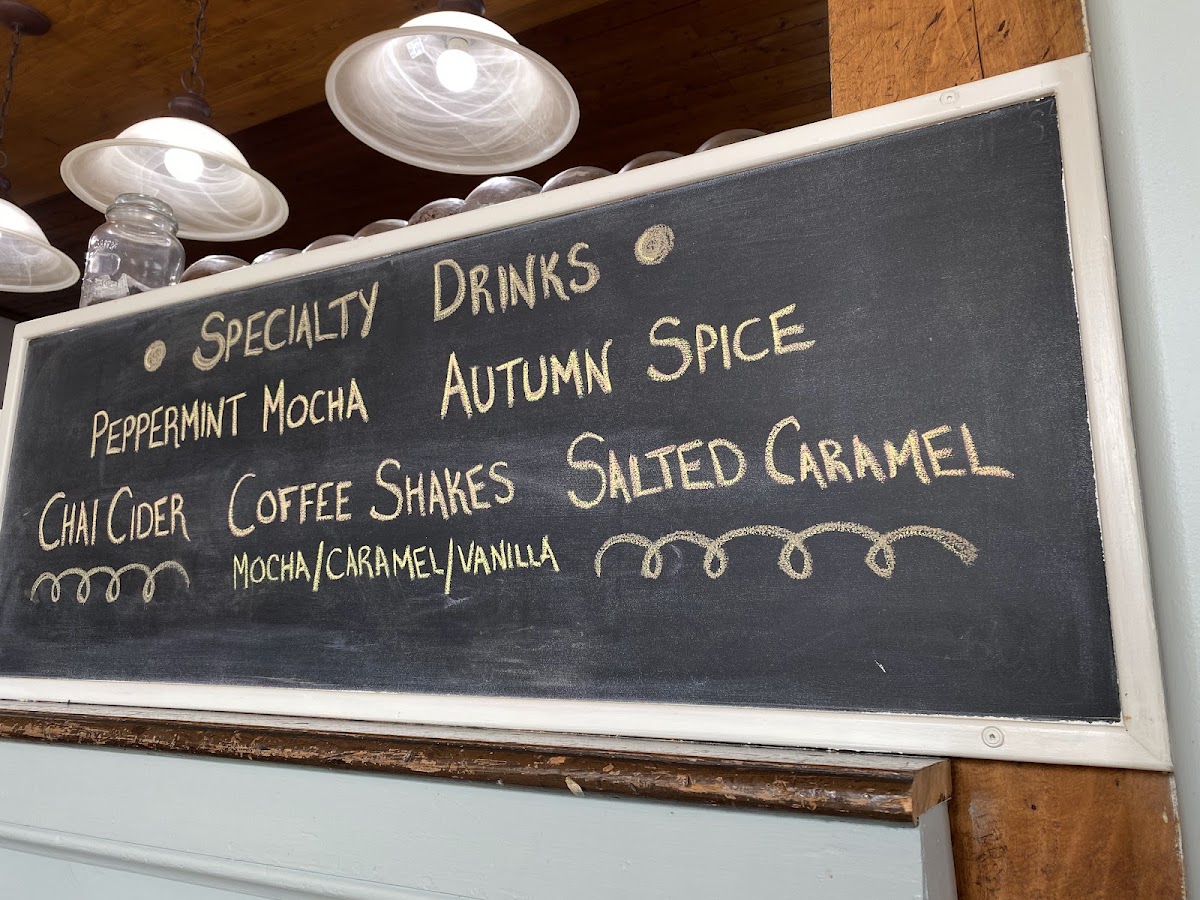 SPECIALTY DRINKS
PEPPERMINT MOCHA AUTUMN SPICE
CHAI CIDER COFFEE SHAKES SALTED CARAMEL
MOCHA/CARAMEL/VANILLA